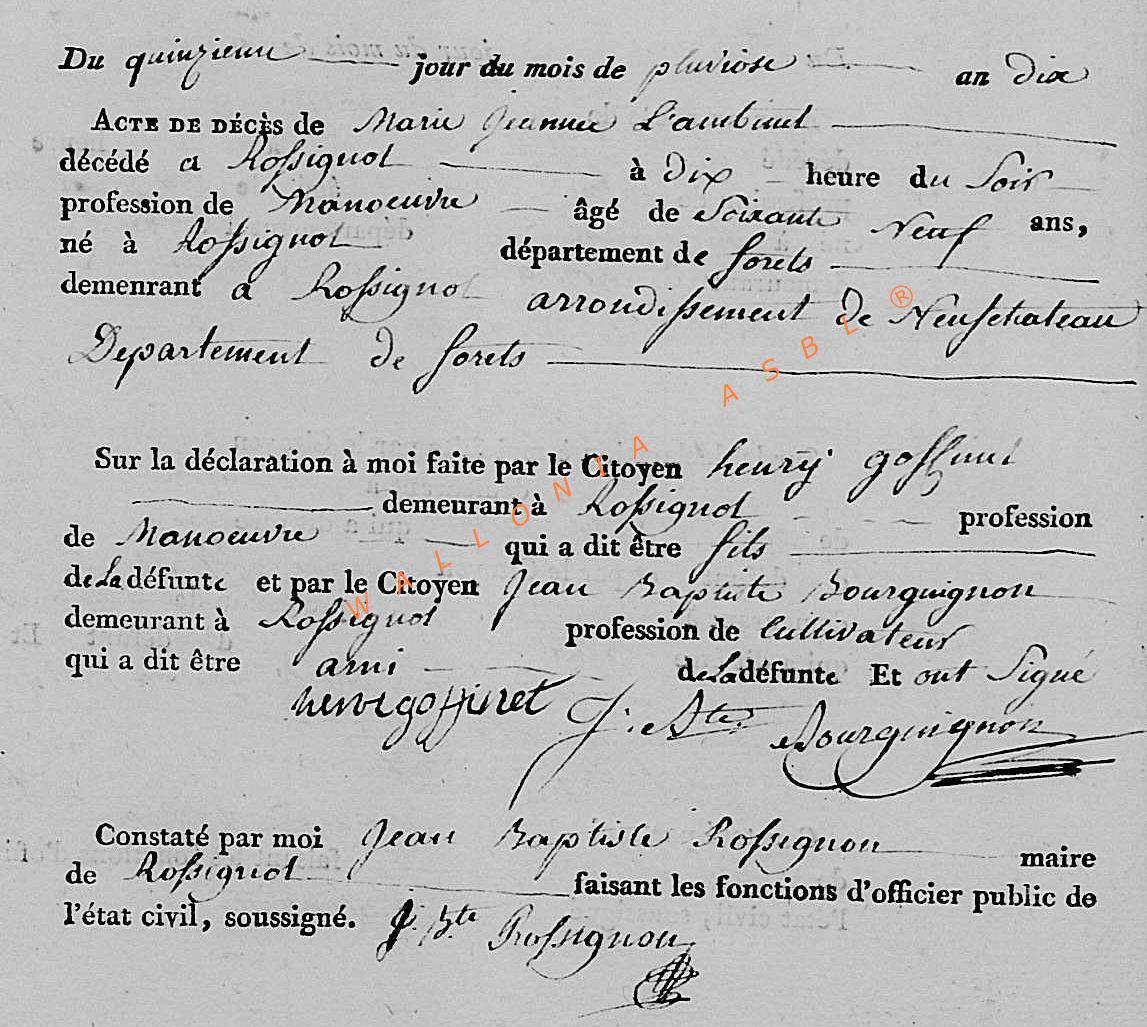 Du quinzieme jour du mois de pluviose an dix
ACTE DE DÉCÈS de Marie Jeanne Lambinet
décédé a Rossignol à Dix heure du Soir
profession de Manoeuvre âgé de Soixante Neuf ans,
né à Rossignol département de forets
demenrant a Rossignol arrondissement de Neufchateau
Departement de forets
Sur la déclaration à moi faite par le Citoyen henry goffinet
demeurant à Rossignol profession
de Manoeuvre qui a dit être fils
de La défunte et par le Citoyen Jean Baptiste Bourguignon
demeurant à Rossignol profession de Cultivateur
qui a dit être ami de La défunte Et ont Signé
henri goffinet J. Bte Bourguignon
Constaté par moi Jean Baptiste Rossignon maire
de Rossignol faisant les fonctions d'officier public de
l'état civil, soussigné. J. Bte Rossignon
WALLONIA ASBL ®